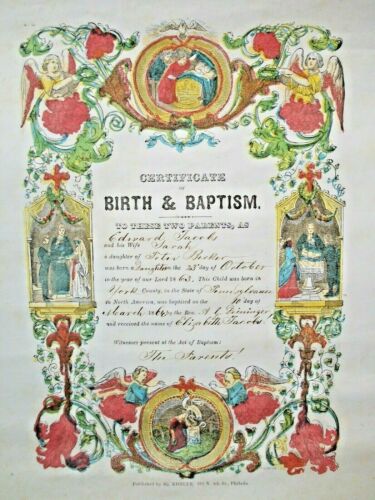 CERTIFICATE
OF
BIRTH & BAPTISM.
TO THESE TWO PARENTS, AS
Edward Jacobs
and his Wife Sarah
a daughter of Peter Becker
was born Daughter the 23 day of October
in the year of our Lord 1863. This Child was born in
York County, in the State of Pennsylvania
in North America, was baptised on the 10 day of
March 1864 by the Rev. A. C.
and received the name of Elizabeth Jacobs
Witnesses present at the Act of Baptism:
The Parents
Published by Ig. KOHLER, N. 4th St., Philada.